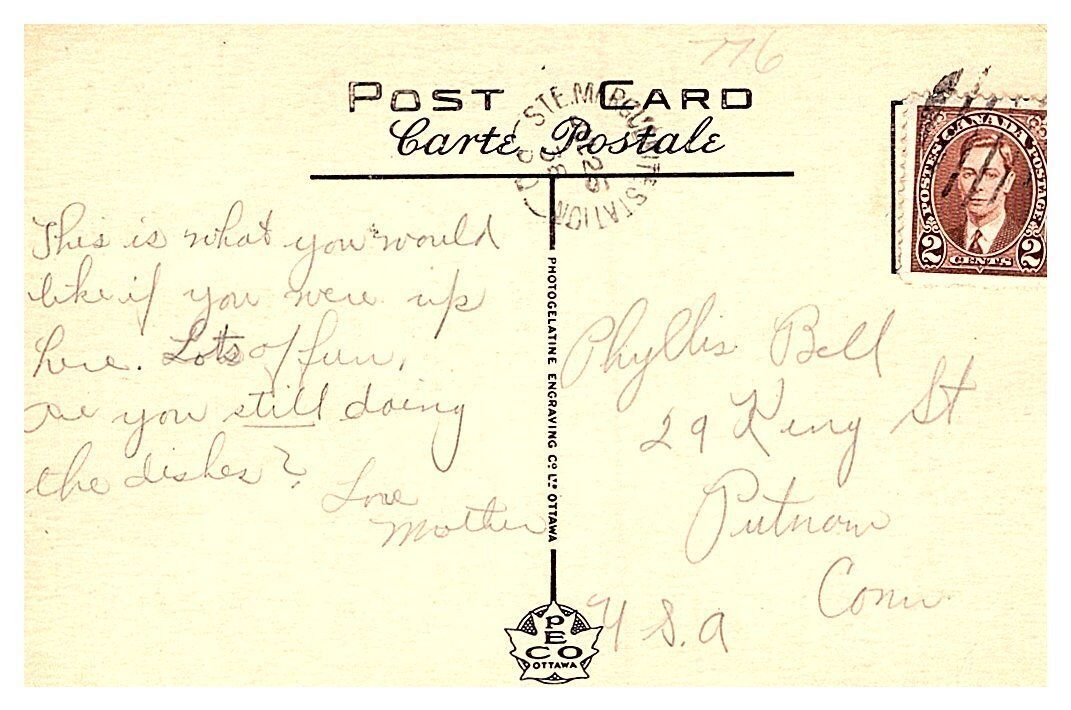 776
POST CARD
Carte Postale
STE. MARGUERITE STATION
25
38
POSTES CANADA POSTAGE
2 CENTS 2
This is what you would
like if you were up
here. Lots of fun.
Are you still doing
the dishes?
Love
Mother
PHOTOGELATINE ENGRAVING CO LTD OTTAWA
Phyllis Bell
29 King St
Putnam
Conn
U.S.A
PECO
OTTAWA